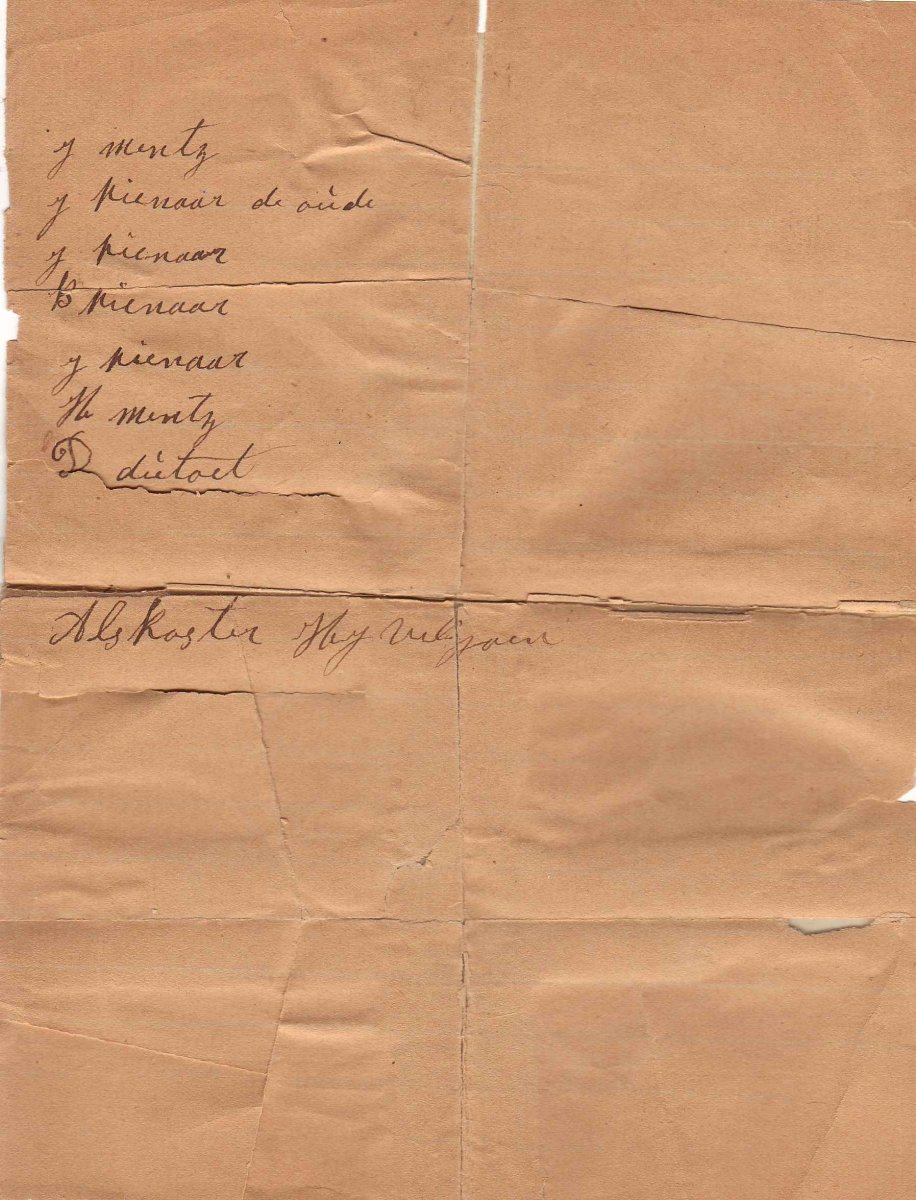 J mentz
J pienaar de oude
J pienaar
P pienaar
J pienaar
H mentz
D dutoet
Als Koster HJ Veljoen